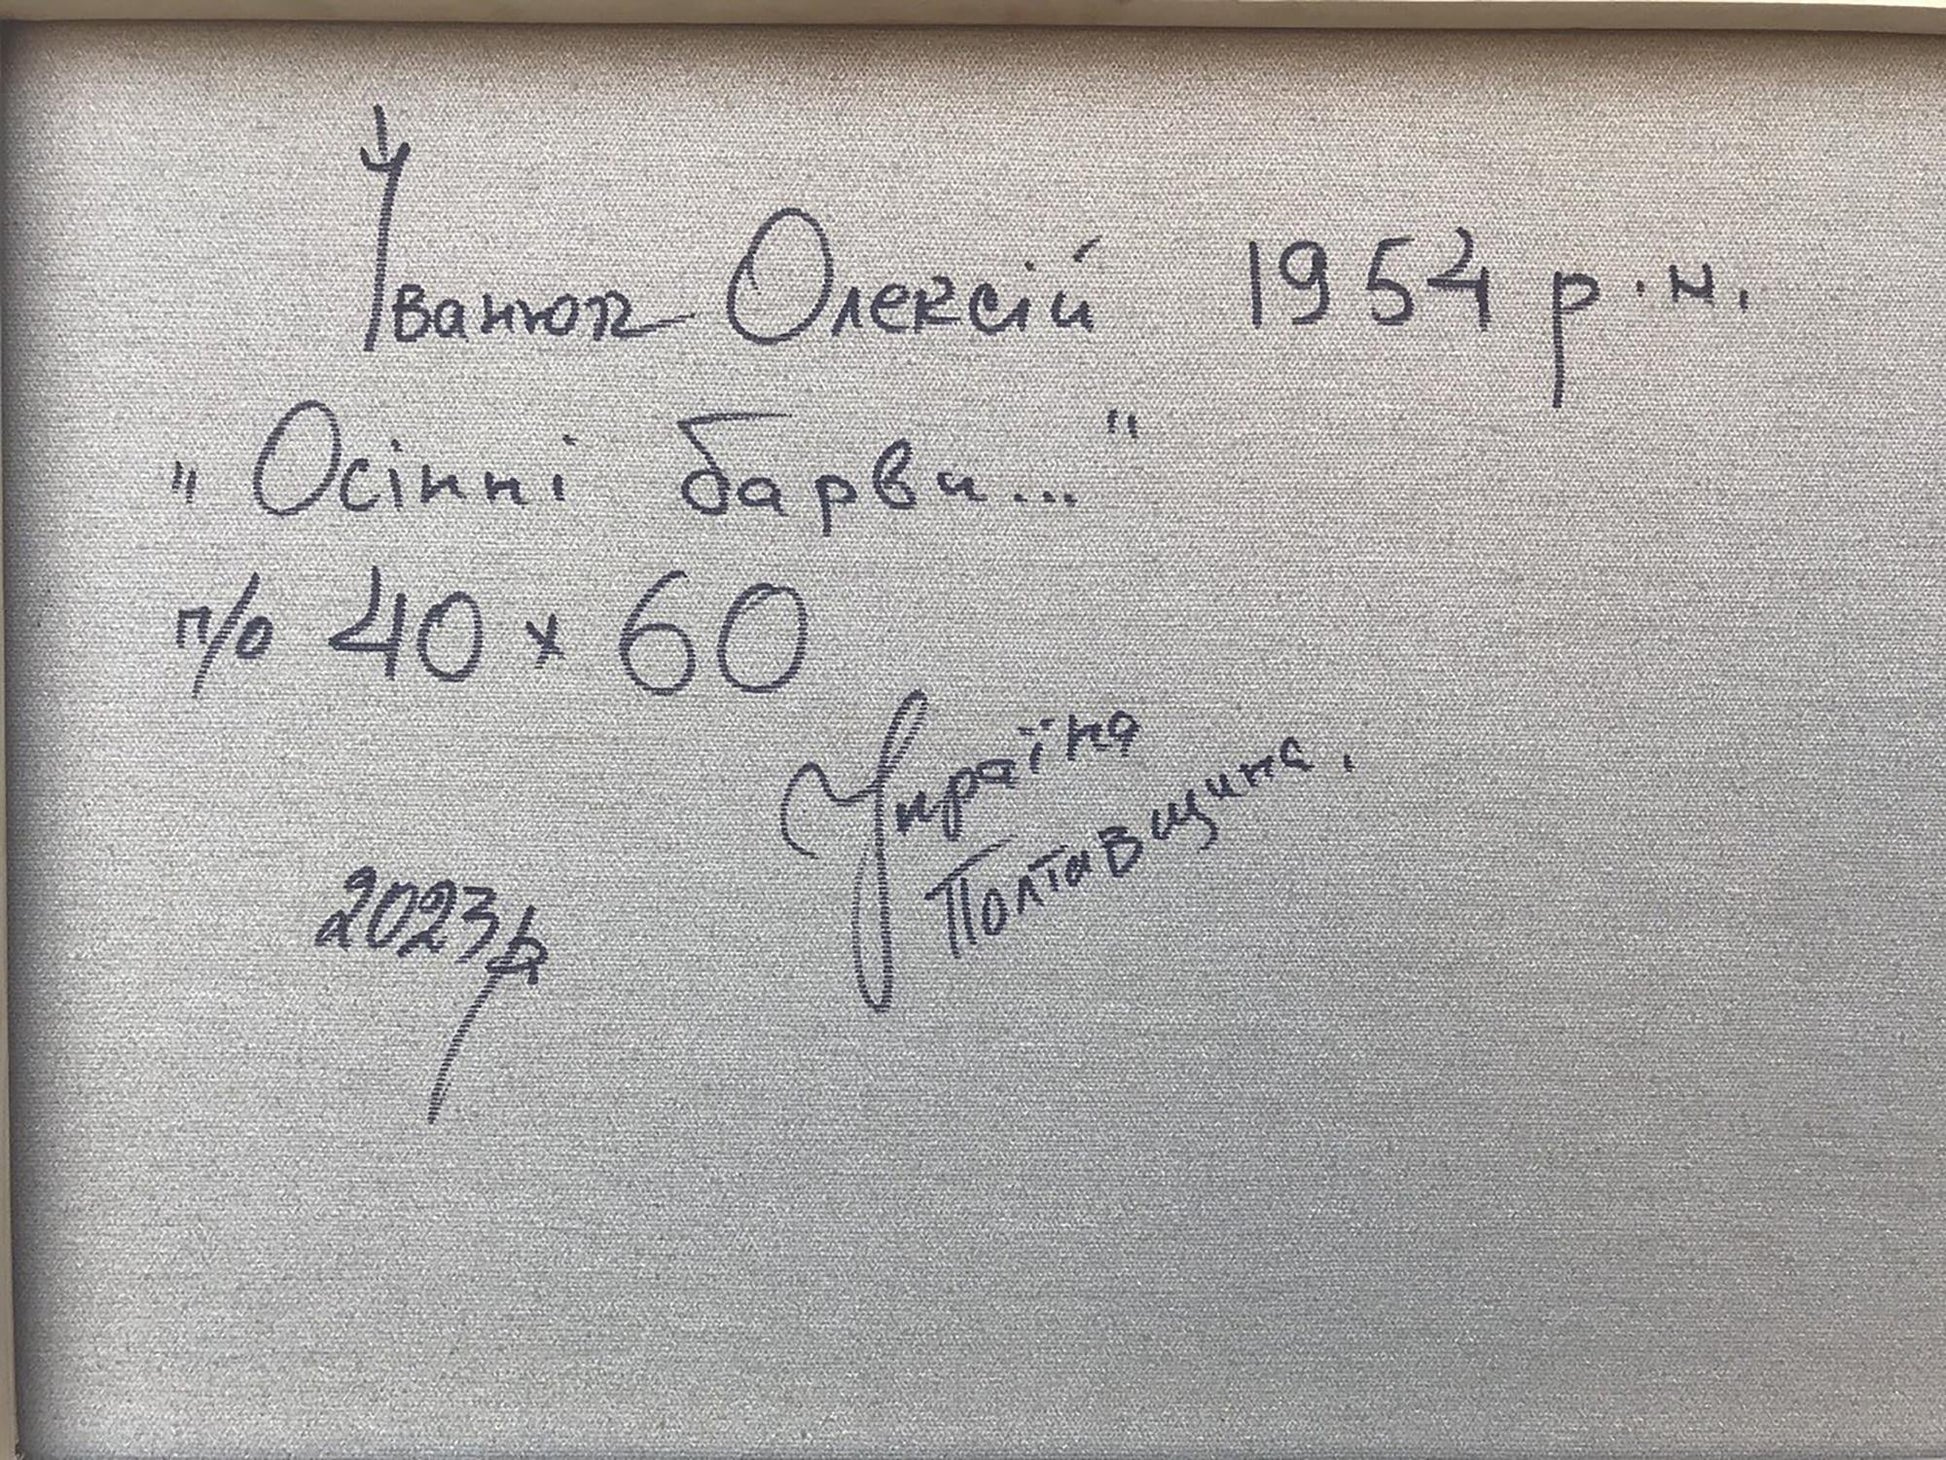 Іванюк Олексій 1954 р.н.
"Осінні барви..."
п/о 40 х 60
Україна
Полтавщина.
2023р